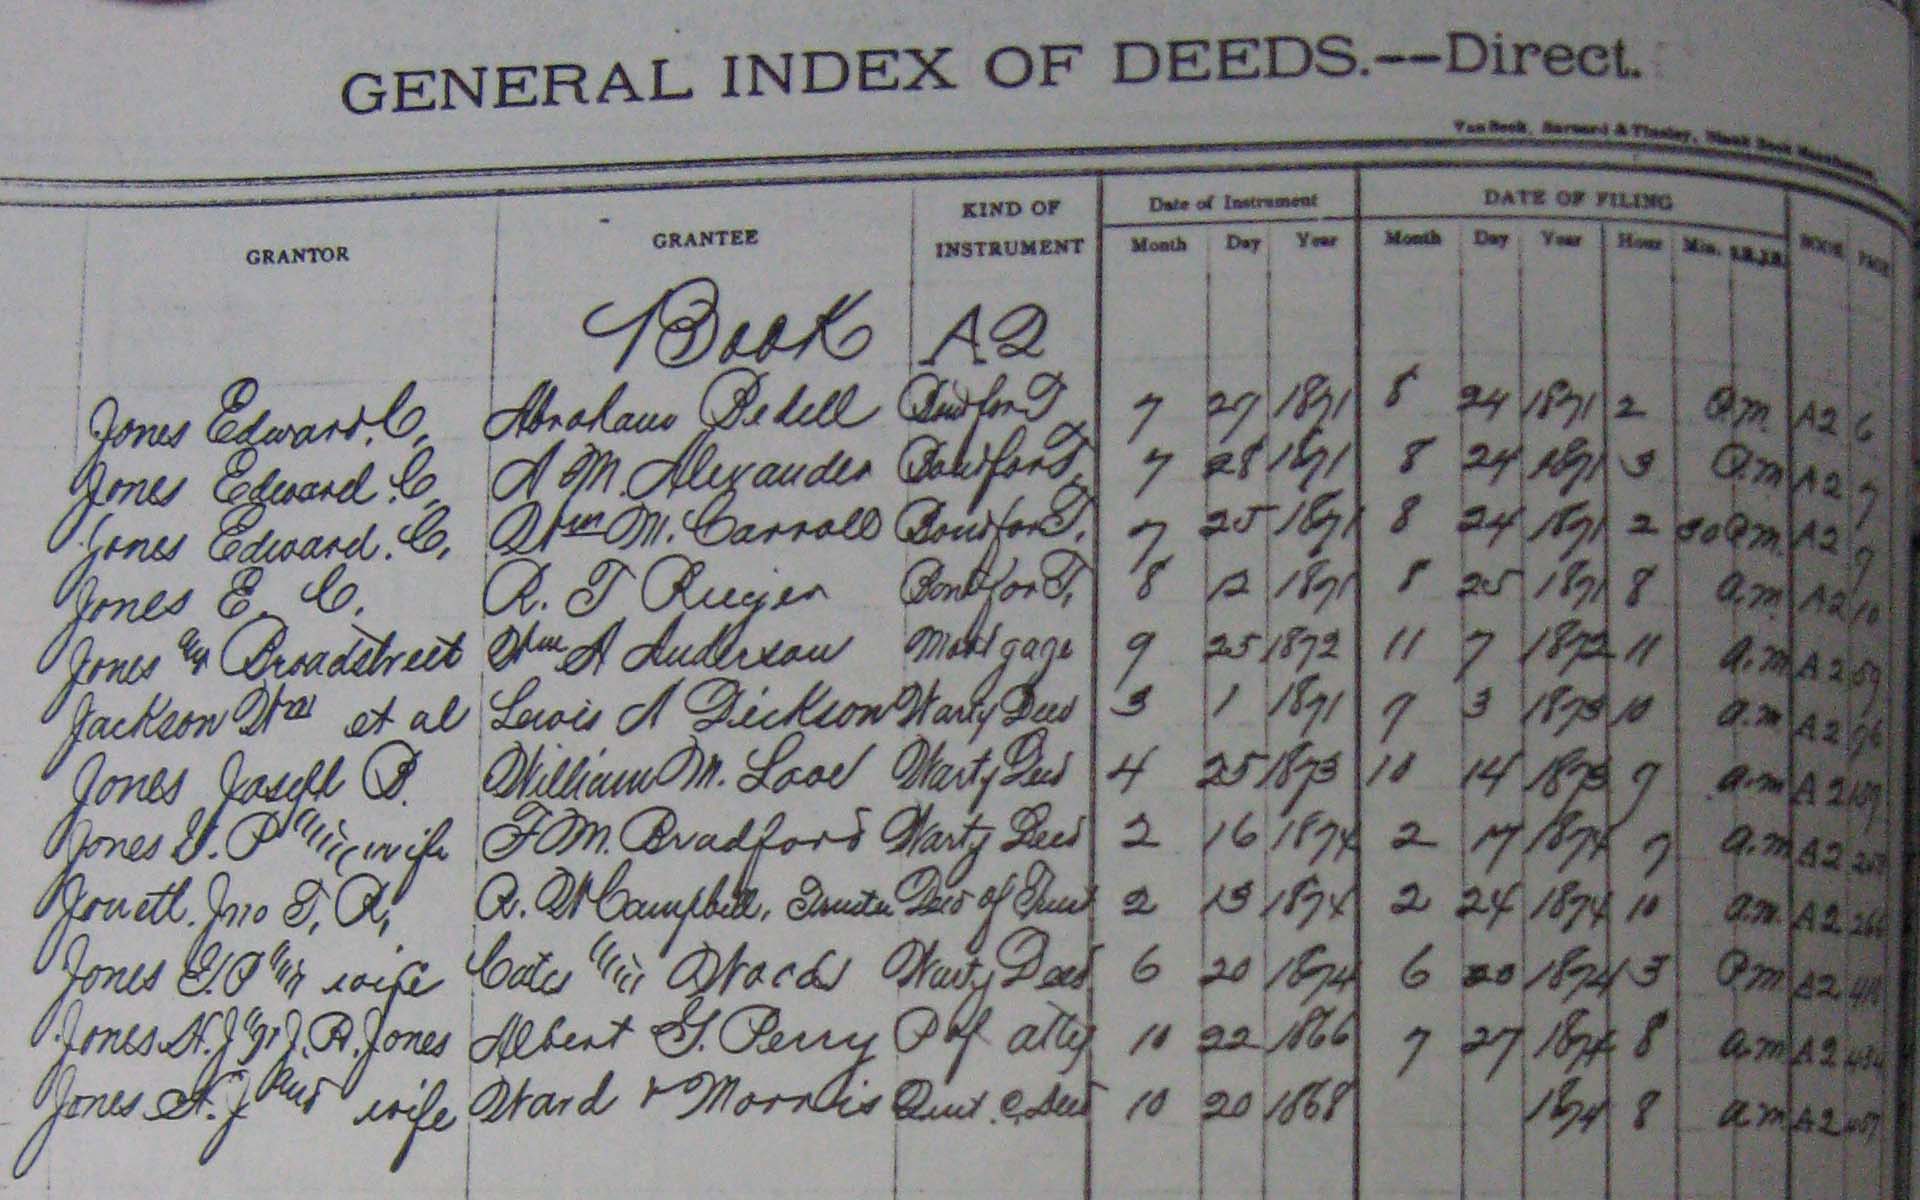 GENERAL INDEX OF DEEDS.--Direct.
Van Beek, Barnard & Tinsley, Blank Book
GRANTOR GRANTEE KIND OF INSTRUMENT Date of Instrument DATE OF FILING BOOK PAGE
Month Day Year Month Day Year Hour Min.
Book A2
Jones Edward. C. Abraham Bedell Bond for T 7 27 1871 8 24 1871 2 P.m. A2 6
Jones Edward. C. A M. Alexander Bond for T. 7 28 1871 8 24 1871 3 P.m A2 7
Jones Edward. C. Wm M. Carroll Bond for T. 7 25 1871 8 24 1871 2 30 P.m. A2 9
Jones E. C. R. T Bond for T. 8 12 1871 8 25 1871 8 a.m A2 10
Jones and Broadstreet Wm A Anderson Mortgage 9 25 1872 11 7 1872 11 a.m A2 59
Jackson Wm et al Lewis A Dickson Warty Deed 3 1 1871 7 3 1873 10 a.m A2 96
Jones Joseph B. William M. Love Warty Deed 4 25 1873 10 14 1873 9 a.m A2 159
Jones G. P and wife F M. Bradford Warty Deed 2 16 1874 2 17 1874 7 a.m A2
Jouett. Jno T. R. R. W Campbell, Trustee Deed of Trust 2 13 1874 2 24 1874 10 a.m. A2 266
Jones G. P and wife Cates and Ward Warty Deed 6 20 1874 6 20 1874 3 P.m A2
Jones H. J. & J. R. Jones Albert G. Perry P of atty 10 22 1866 7 27 1874 8 a.m A2 434
Jones H. J and wife Ward & Morris Quit C. Deed 10 20 1868 1874 8 a.m A2